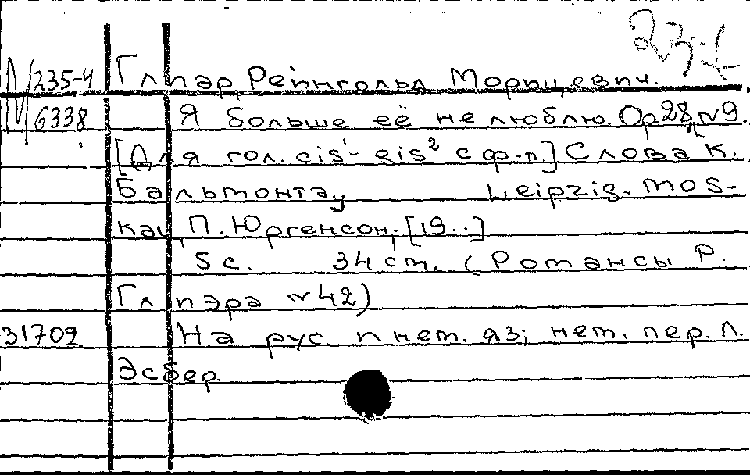 23-1
М 235-4 Глиэр Рейнгольд Морицевич.
М 6338 Я больше её не люблю. Op 28, N9
[Для гол. cis¹- gis² с ф-п.] Слова К.
Бальмонта, Leipzig. Mos-
kau, П. Юргенсон, [19..]
5 с. 34 cm. (Романсы Р.
Глиэра N 42)
31709 На рус и нем. яз; нем. пер. Л.
Эсбер